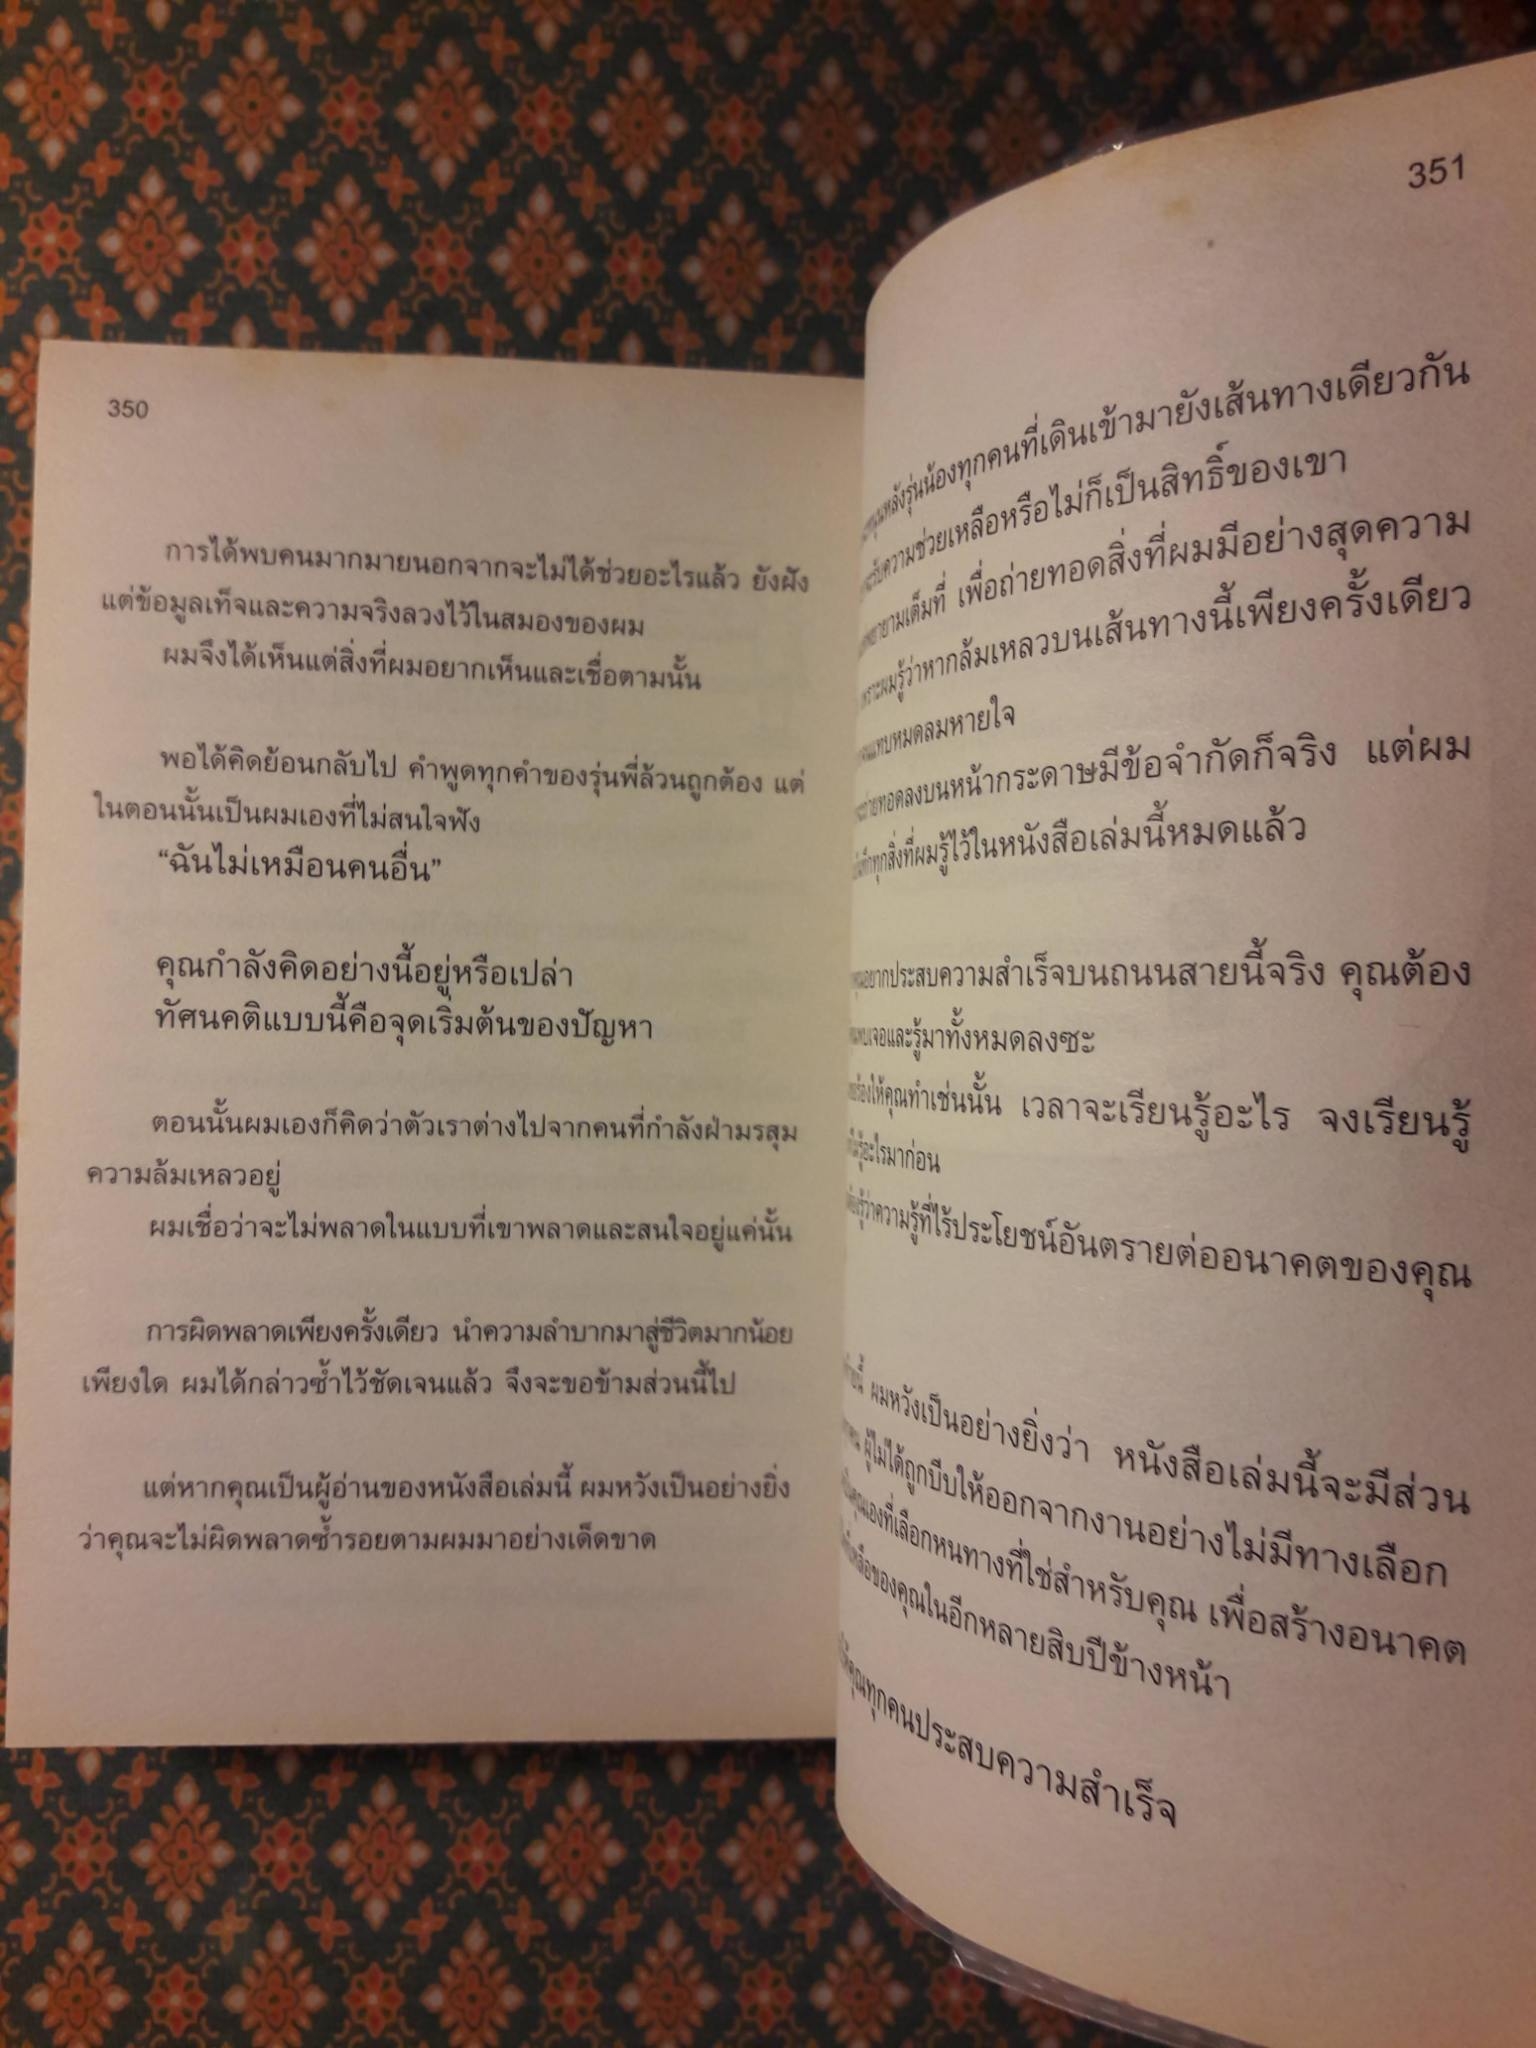 350
การได้พบคนมากมายนอกจากจะไม่ได้ช่วยอะไรแล้ว ยังฝัง
แต่ข้อมูลเท็จและความจริงลวงไว้ในสมองของผม
ผมจึงได้เห็นแต่สิ่งที่ผมอยากเห็นและเชื่อตามนั้น
พอได้คิดย้อนกลับไป คำพูดทุกคำของรุ่นพี่ล้วนถูกต้อง แต่
ในตอนนั้นเป็นผมเองที่ไม่สนใจฟัง
“ฉันไม่เหมือนคนอื่น”
คุณกำลังคิดอย่างนี้อยู่หรือเปล่า
ทัศนคติแบบนี้คือจุดเริ่มต้นของปัญหา
ตอนนั้นผมเองก็คิดว่าตัวเราต่างไปจากคนที่กำลังฝ่ามรสุม
ความล้มเหลวอยู่
ผมเชื่อว่าจะไม่พลาดในแบบที่เขาพลาดและสนใจอยู่แค่นั้น
การผิดพลาดเพียงครั้งเดียว นำความลำบากมาสู่ชีวิตมากน้อย
เพียงใด ผมได้กล่าวซ้ำไว้ชัดเจนแล้ว จึงจะขอข้ามส่วนนี้ไป
แต่หากคุณเป็นผู้อ่านของหนังสือเล่มนี้ ผมหวังเป็นอย่างยิ่ง
ว่าคุณจะไม่ผิดพลาดซ้ำรอยตามผมมาอย่างเด็ดขาด
351
รุ่นน้องทุกคนที่เดินเข้ามายังเส้นทางเดียวกัน
ความช่วยเหลือหรือไม่ก็เป็นสิทธิ์ของเขา
เต็มที่ เพื่อถ่ายทอดสิ่งที่ผมมีอย่างสุดความ
ผมรู้ว่าหากล้มเหลวบนเส้นทางนี้เพียงครั้งเดียว
แทบหมดลมหายใจ
ถ่ายทอดลงบนหน้ากระดาษมีข้อจำกัดก็จริง แต่ผม
ทุกสิ่งที่ผมรู้ไว้ในหนังสือเล่มนี้หมดแล้ว
อยากประสบความสำเร็จบนถนนสายนี้จริง คุณต้อง
เจอและรู้มาทั้งหมดลงซะ
ให้คุณทำเช่นนั้น เวลาจะเรียนรู้อะไร จงเรียนรู้
รู้อะไรมาก่อน
รู้ว่าความรู้ที่ไร้ประโยชน์อันตรายต่ออนาคตของคุณ
ผมหวังเป็นอย่างยิ่งว่า หนังสือเล่มนี้จะมีส่วน
ผู้ไม่ได้ถูกบีบให้ออกจากงานอย่างไม่มีทางเลือก
คุณเองที่เลือกหนทางที่ใช่สำหรับคุณ เพื่อสร้างอนาคต
ของคุณในอีกหลายสิบปีข้างหน้า
ให้คุณทุกคนประสบความสำเร็จ